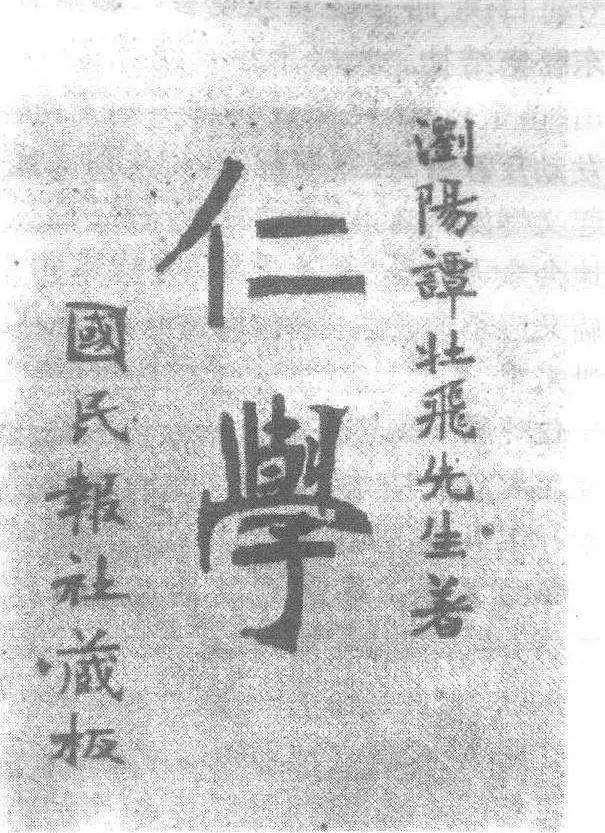 瀏陽譚壯飛先生著
仁學
國民報社藏板